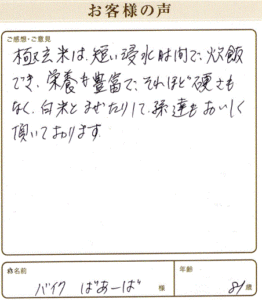 お客様の声
ご感想・ご意見
極玄米は、短い浸水時間で、炊飯
でき、栄養も豊富で、それほど硬さも
なく、白米とまぜたりして、孫達もおいしく
頂いております
お名前
バイク ばあーば 様
年齢
81歳